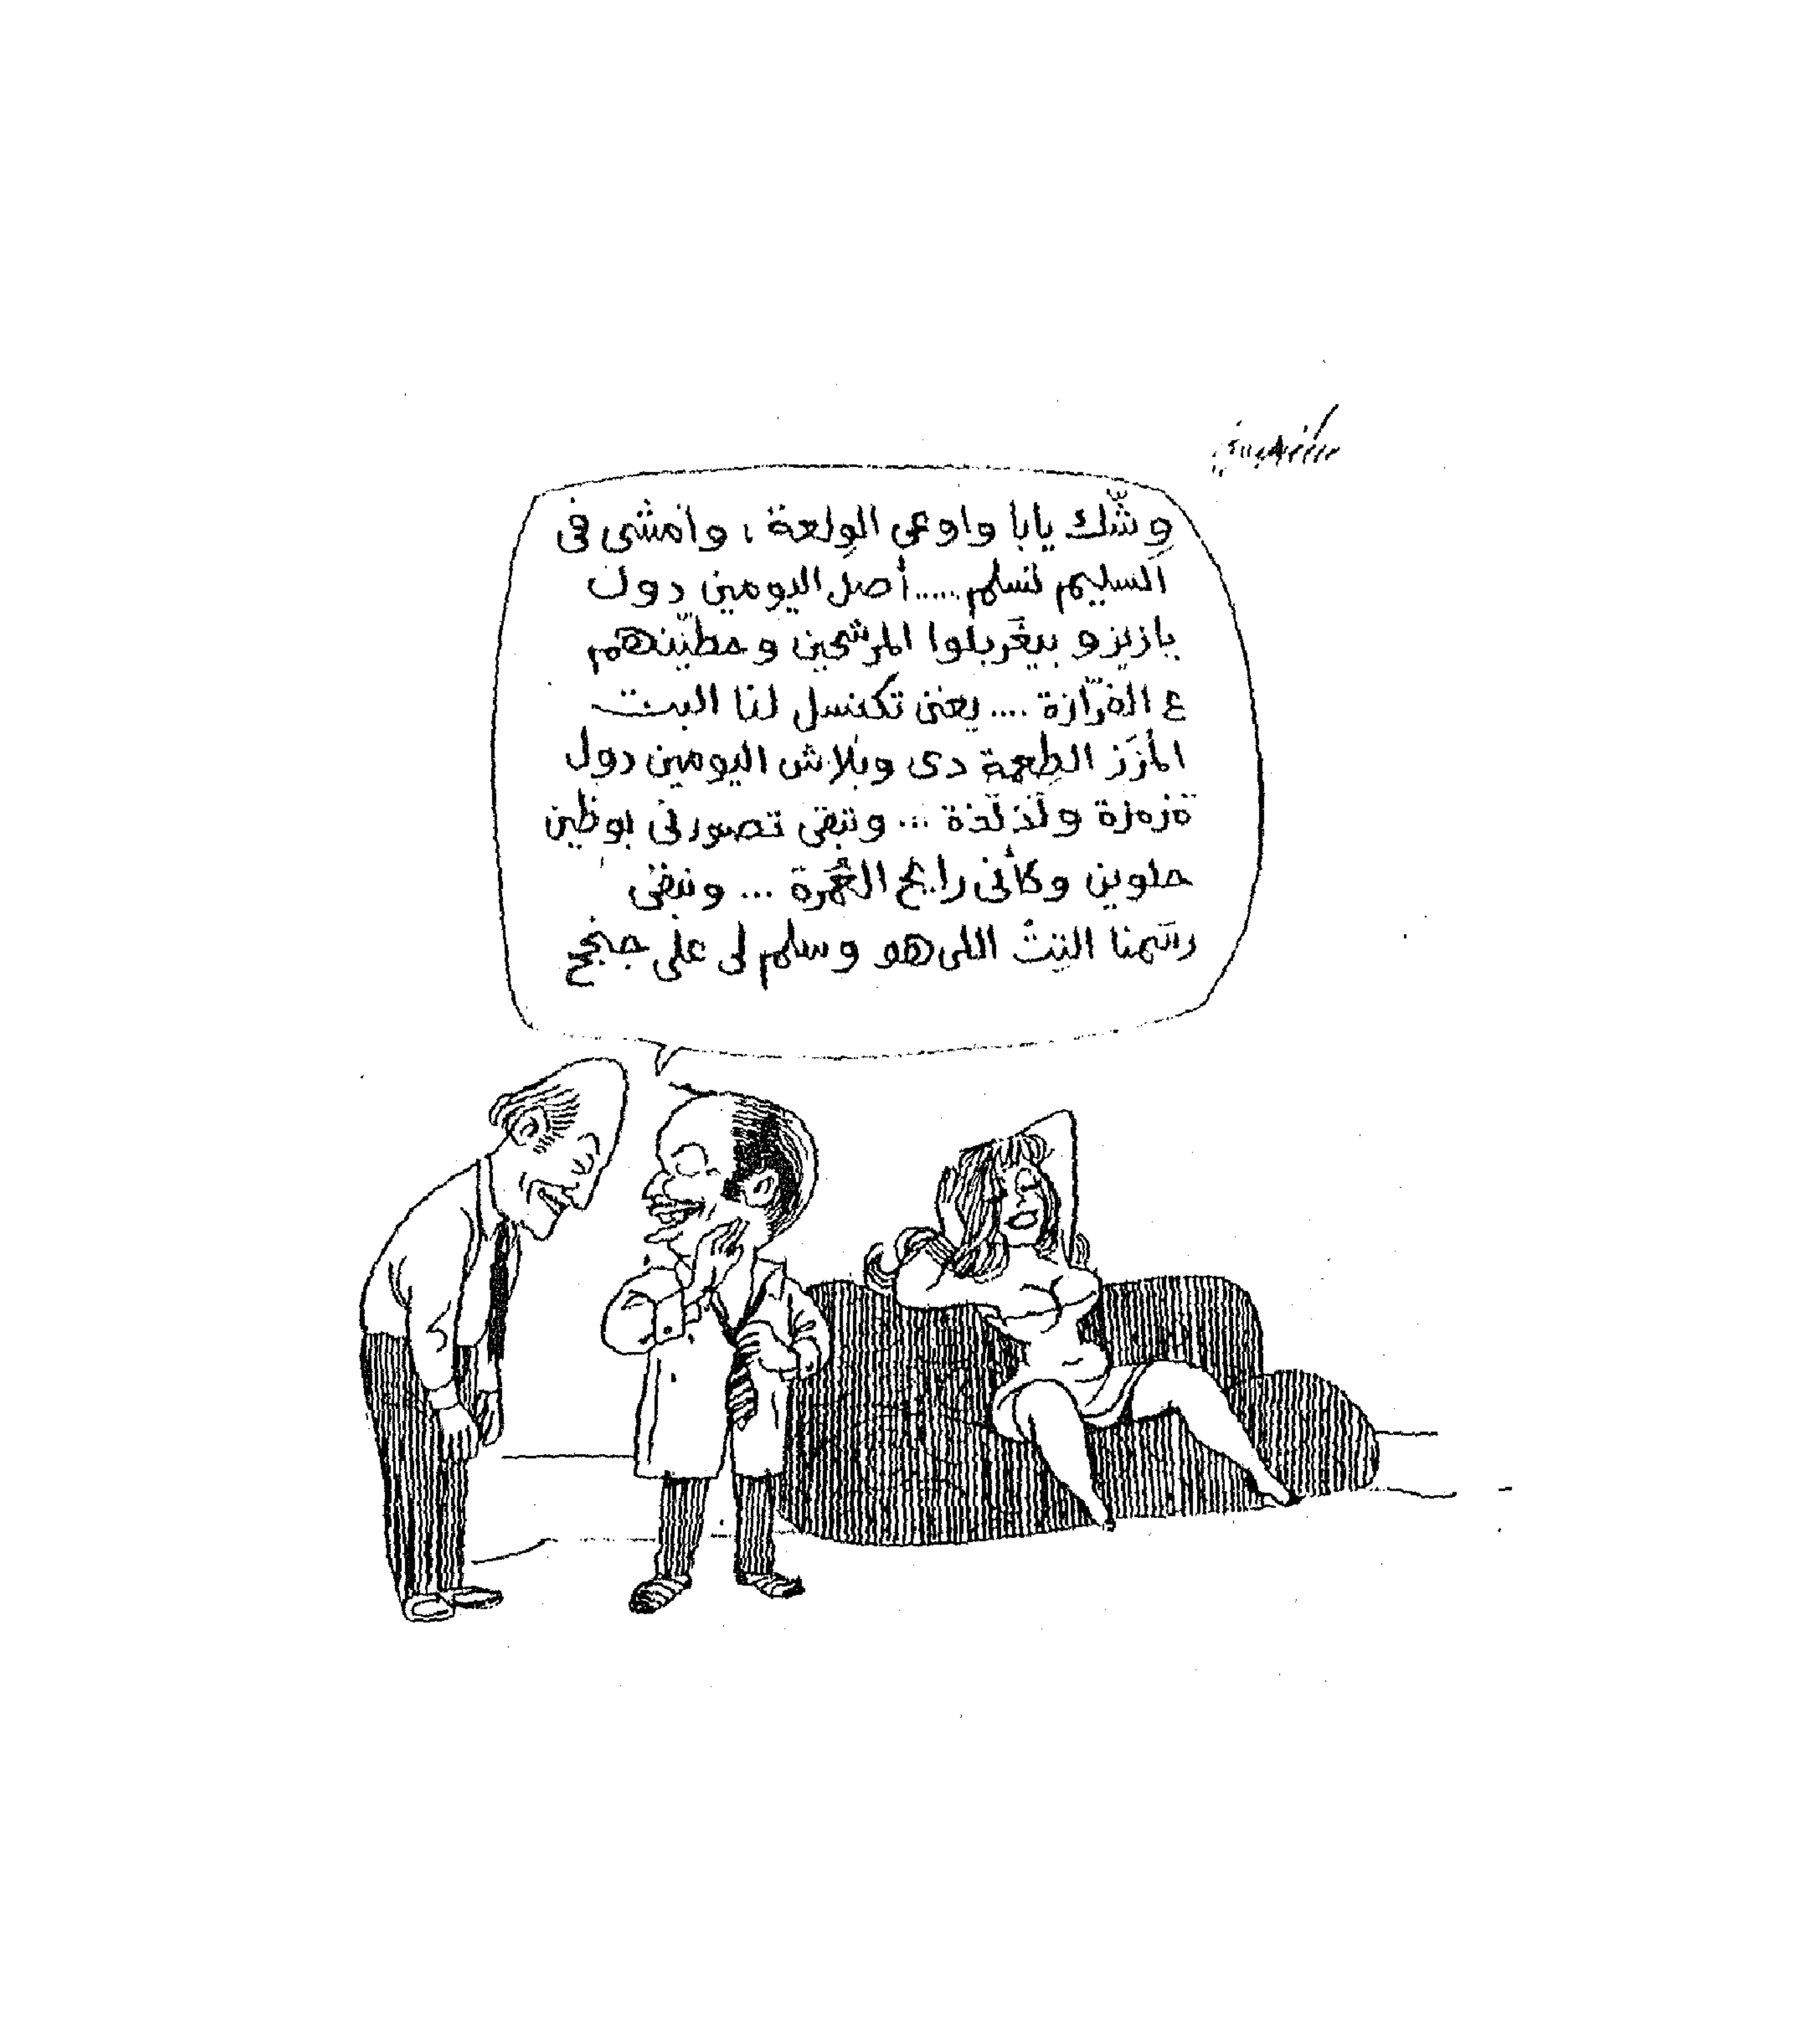 وشّك يابا واوعى الولعة ، وامشى فى
السليم تسلم ..... أصل اليومين دول
يازيزو بيغربلوا المرشحين وحطينهم
ع الفرّازة .... يعنى تكنسل لنا البت
المُزَز الطِعمة دى وبلاش اليومين دول
مَزمزة ولَذلَذة ... وتبقى تصورنى بوظين
حلوين وكأنى رايح العُمرة ... وتبقى
رسَمنا التِتْ اللى هو وسلم لى على